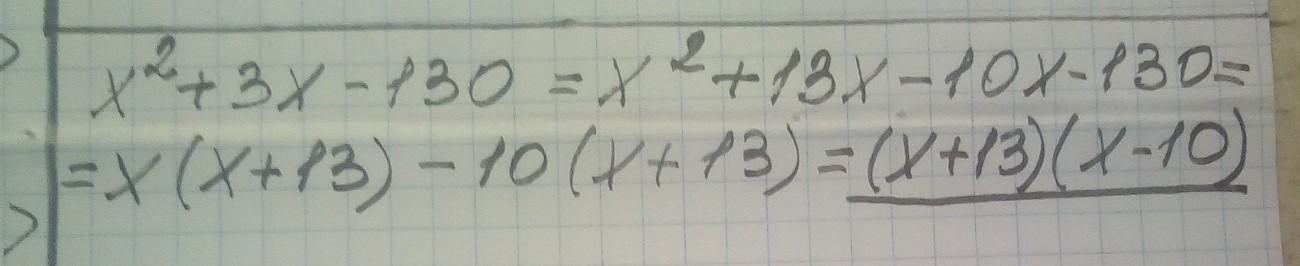 x²+3x-130=x²+13x-10x-130=
=x(x+13)-10(x+13)=(x+13)(x-10)